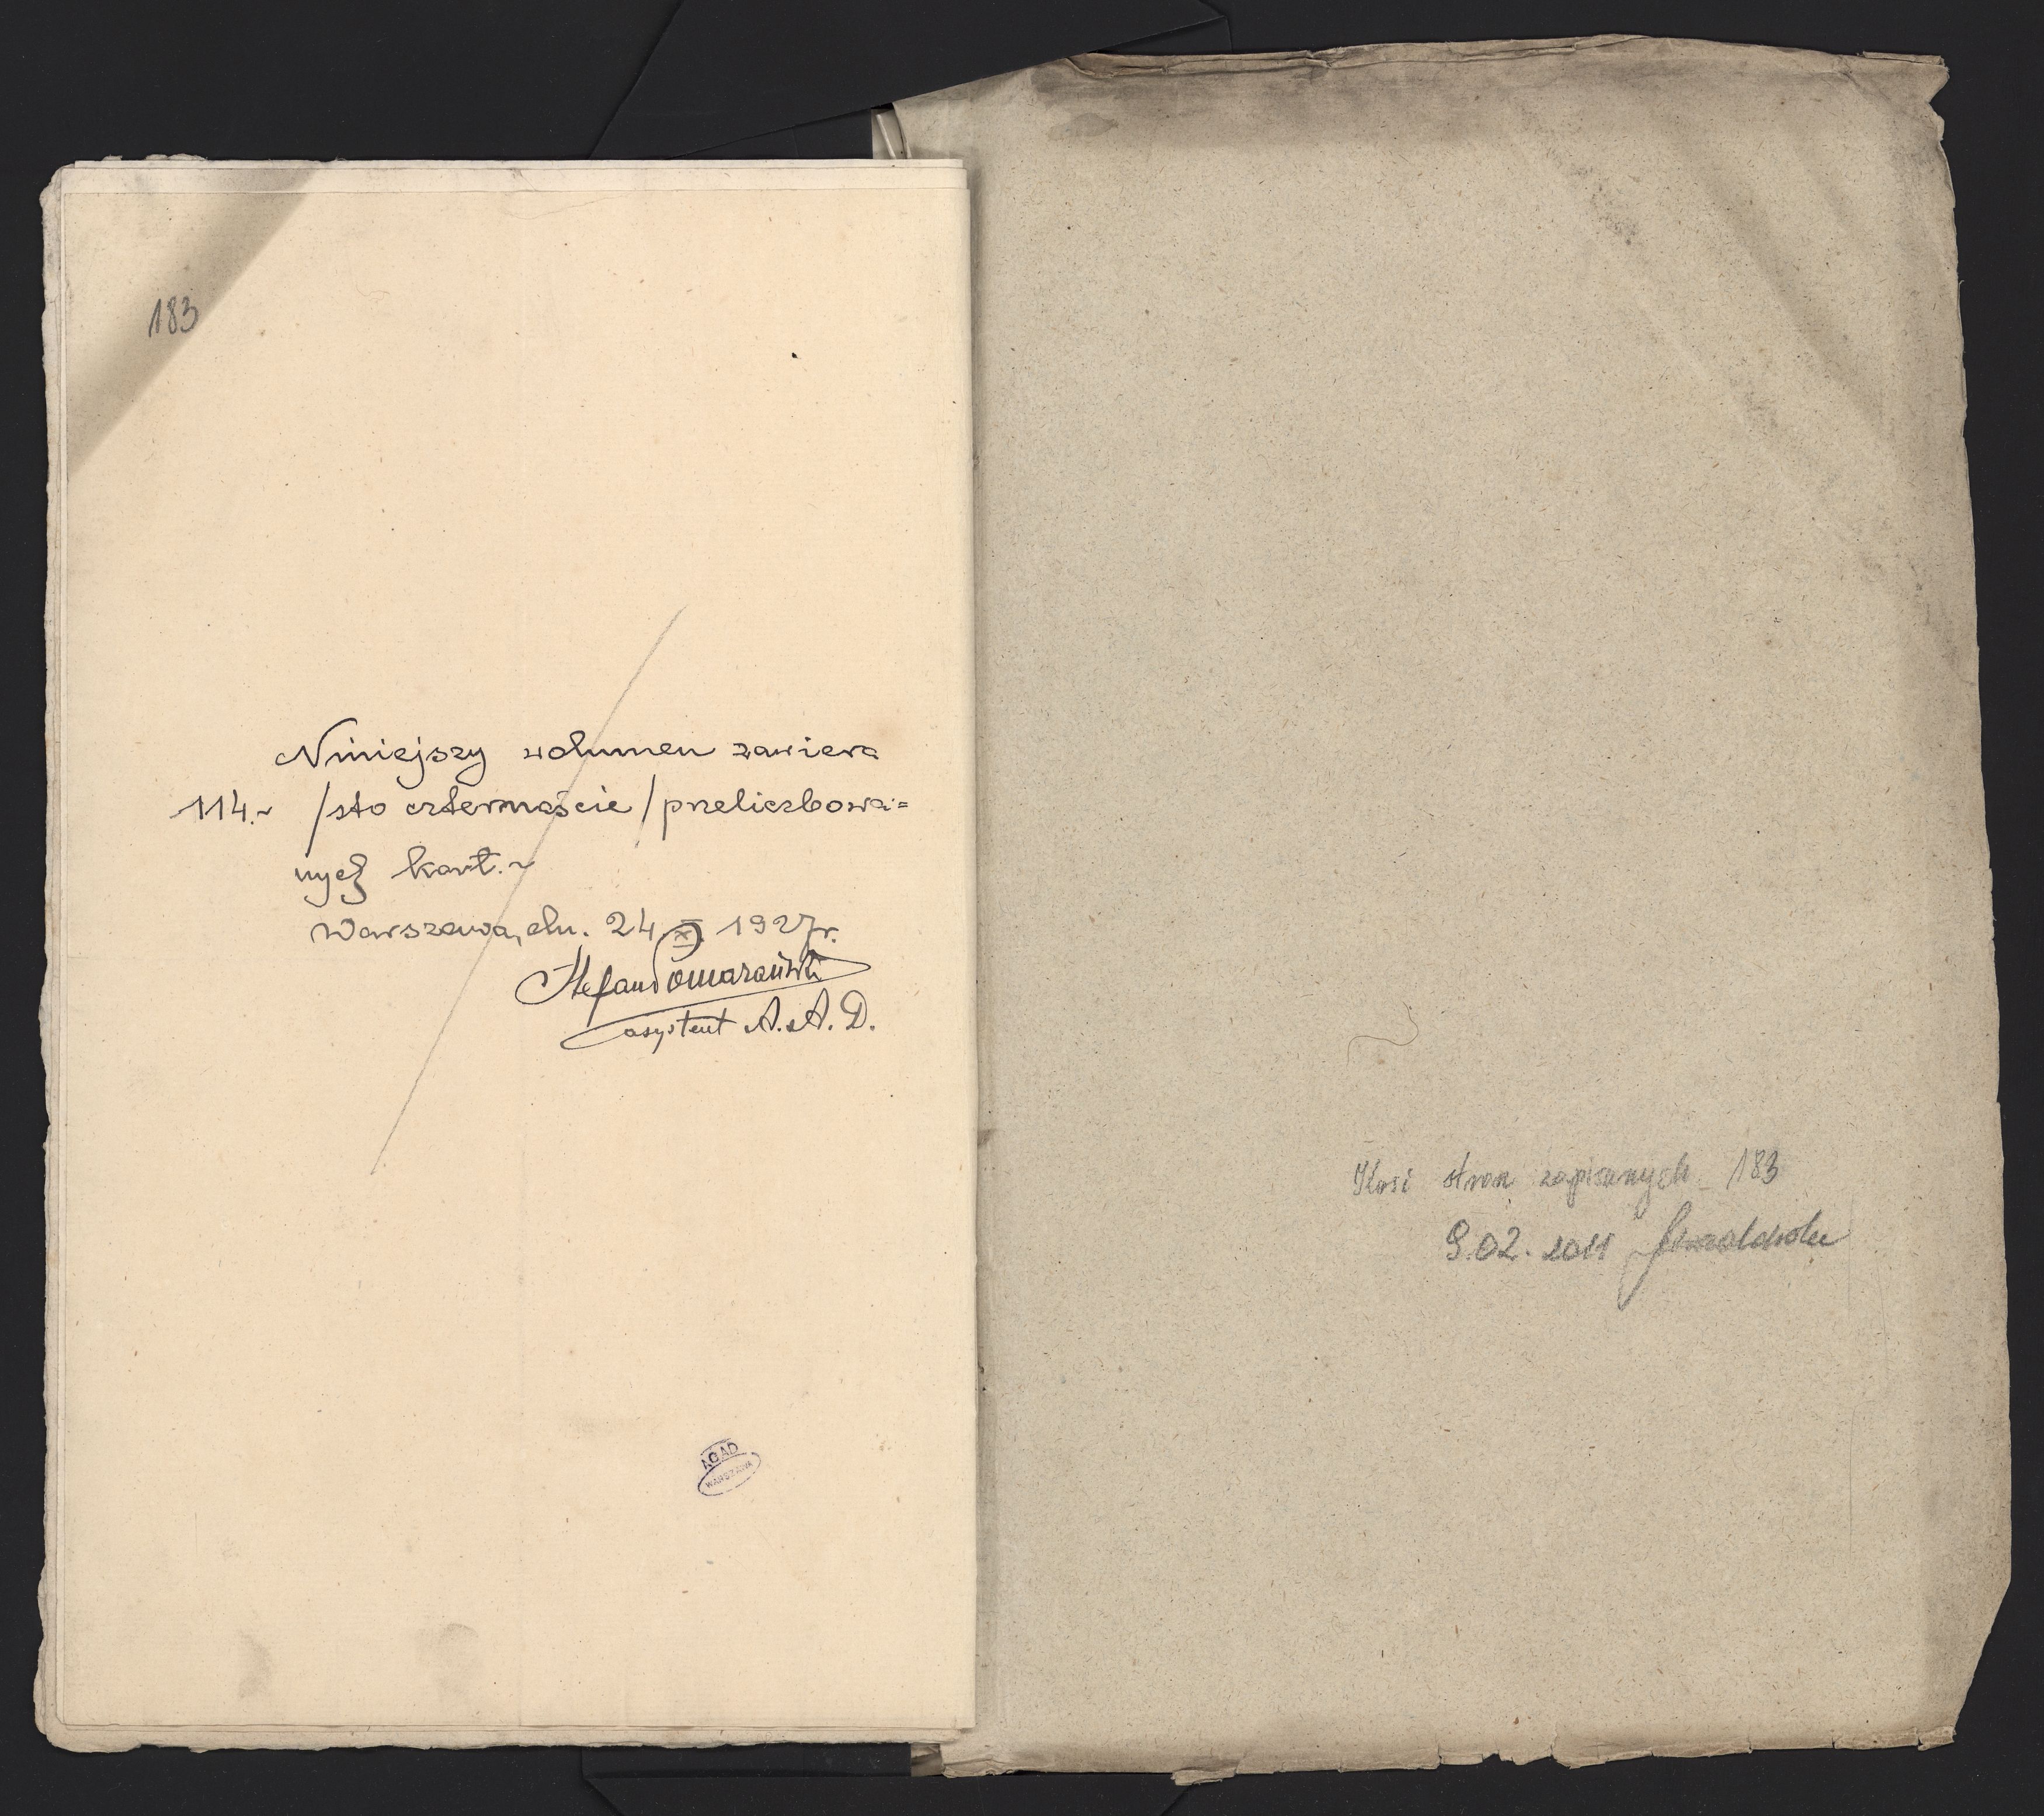 183
Niniejszy wolumen zawiera
114.~ /sto czternaście/ przeliczbowa=
nych kart.~
Warszawa, dn. 24.X.1927r.
Stefan Pomarański
asystent A. A. D.
AGAD
WARSZAWA
Ilość stron zapisanych - 183
9.02.2011